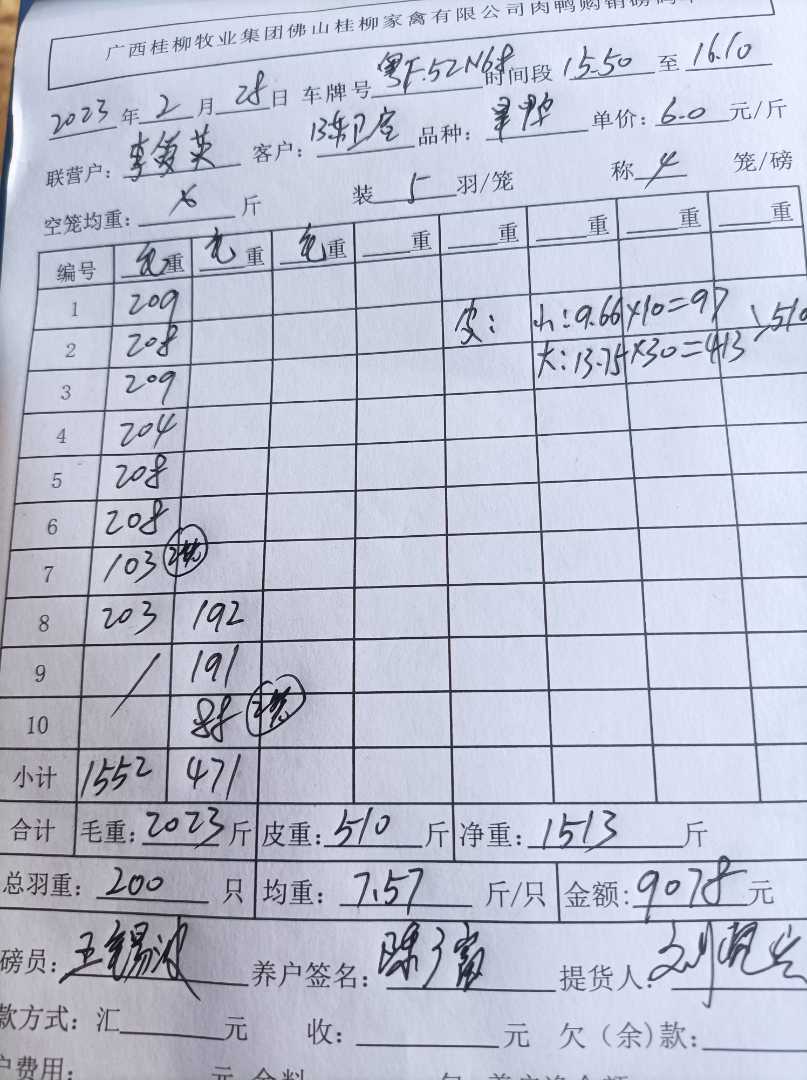 广西桂柳牧业集团佛山桂柳家禽有限公司肉鸭购销磅码单
2023年2月28日 车牌号粤F.52N68时间段15.50至16.10
联营户:李 英 客户:B陈卫 品种: 单价:6.0元/斤
空笼均重: 斤 装5羽/笼 称4笼/磅
编号 毛重 毛重 毛重 重 重 重 重 重
1 209 皮: 小:9.66×10=97
2 208 大:13.75×30=413 510
3 209
4 204
5 208
6 208
7 103 2笼
8 203 192
9 / 191
10 88 2笼
小计 1552 471
合计 毛重:2023斤 皮重:510斤 净重:1513斤
总羽重:200只 均重:7.57斤/只 金额:9078元
磅员:王锡波 养户签名:陈 富 提货人:刘
款方式:汇 元 收: 元 欠(余)款:
户费用: 元